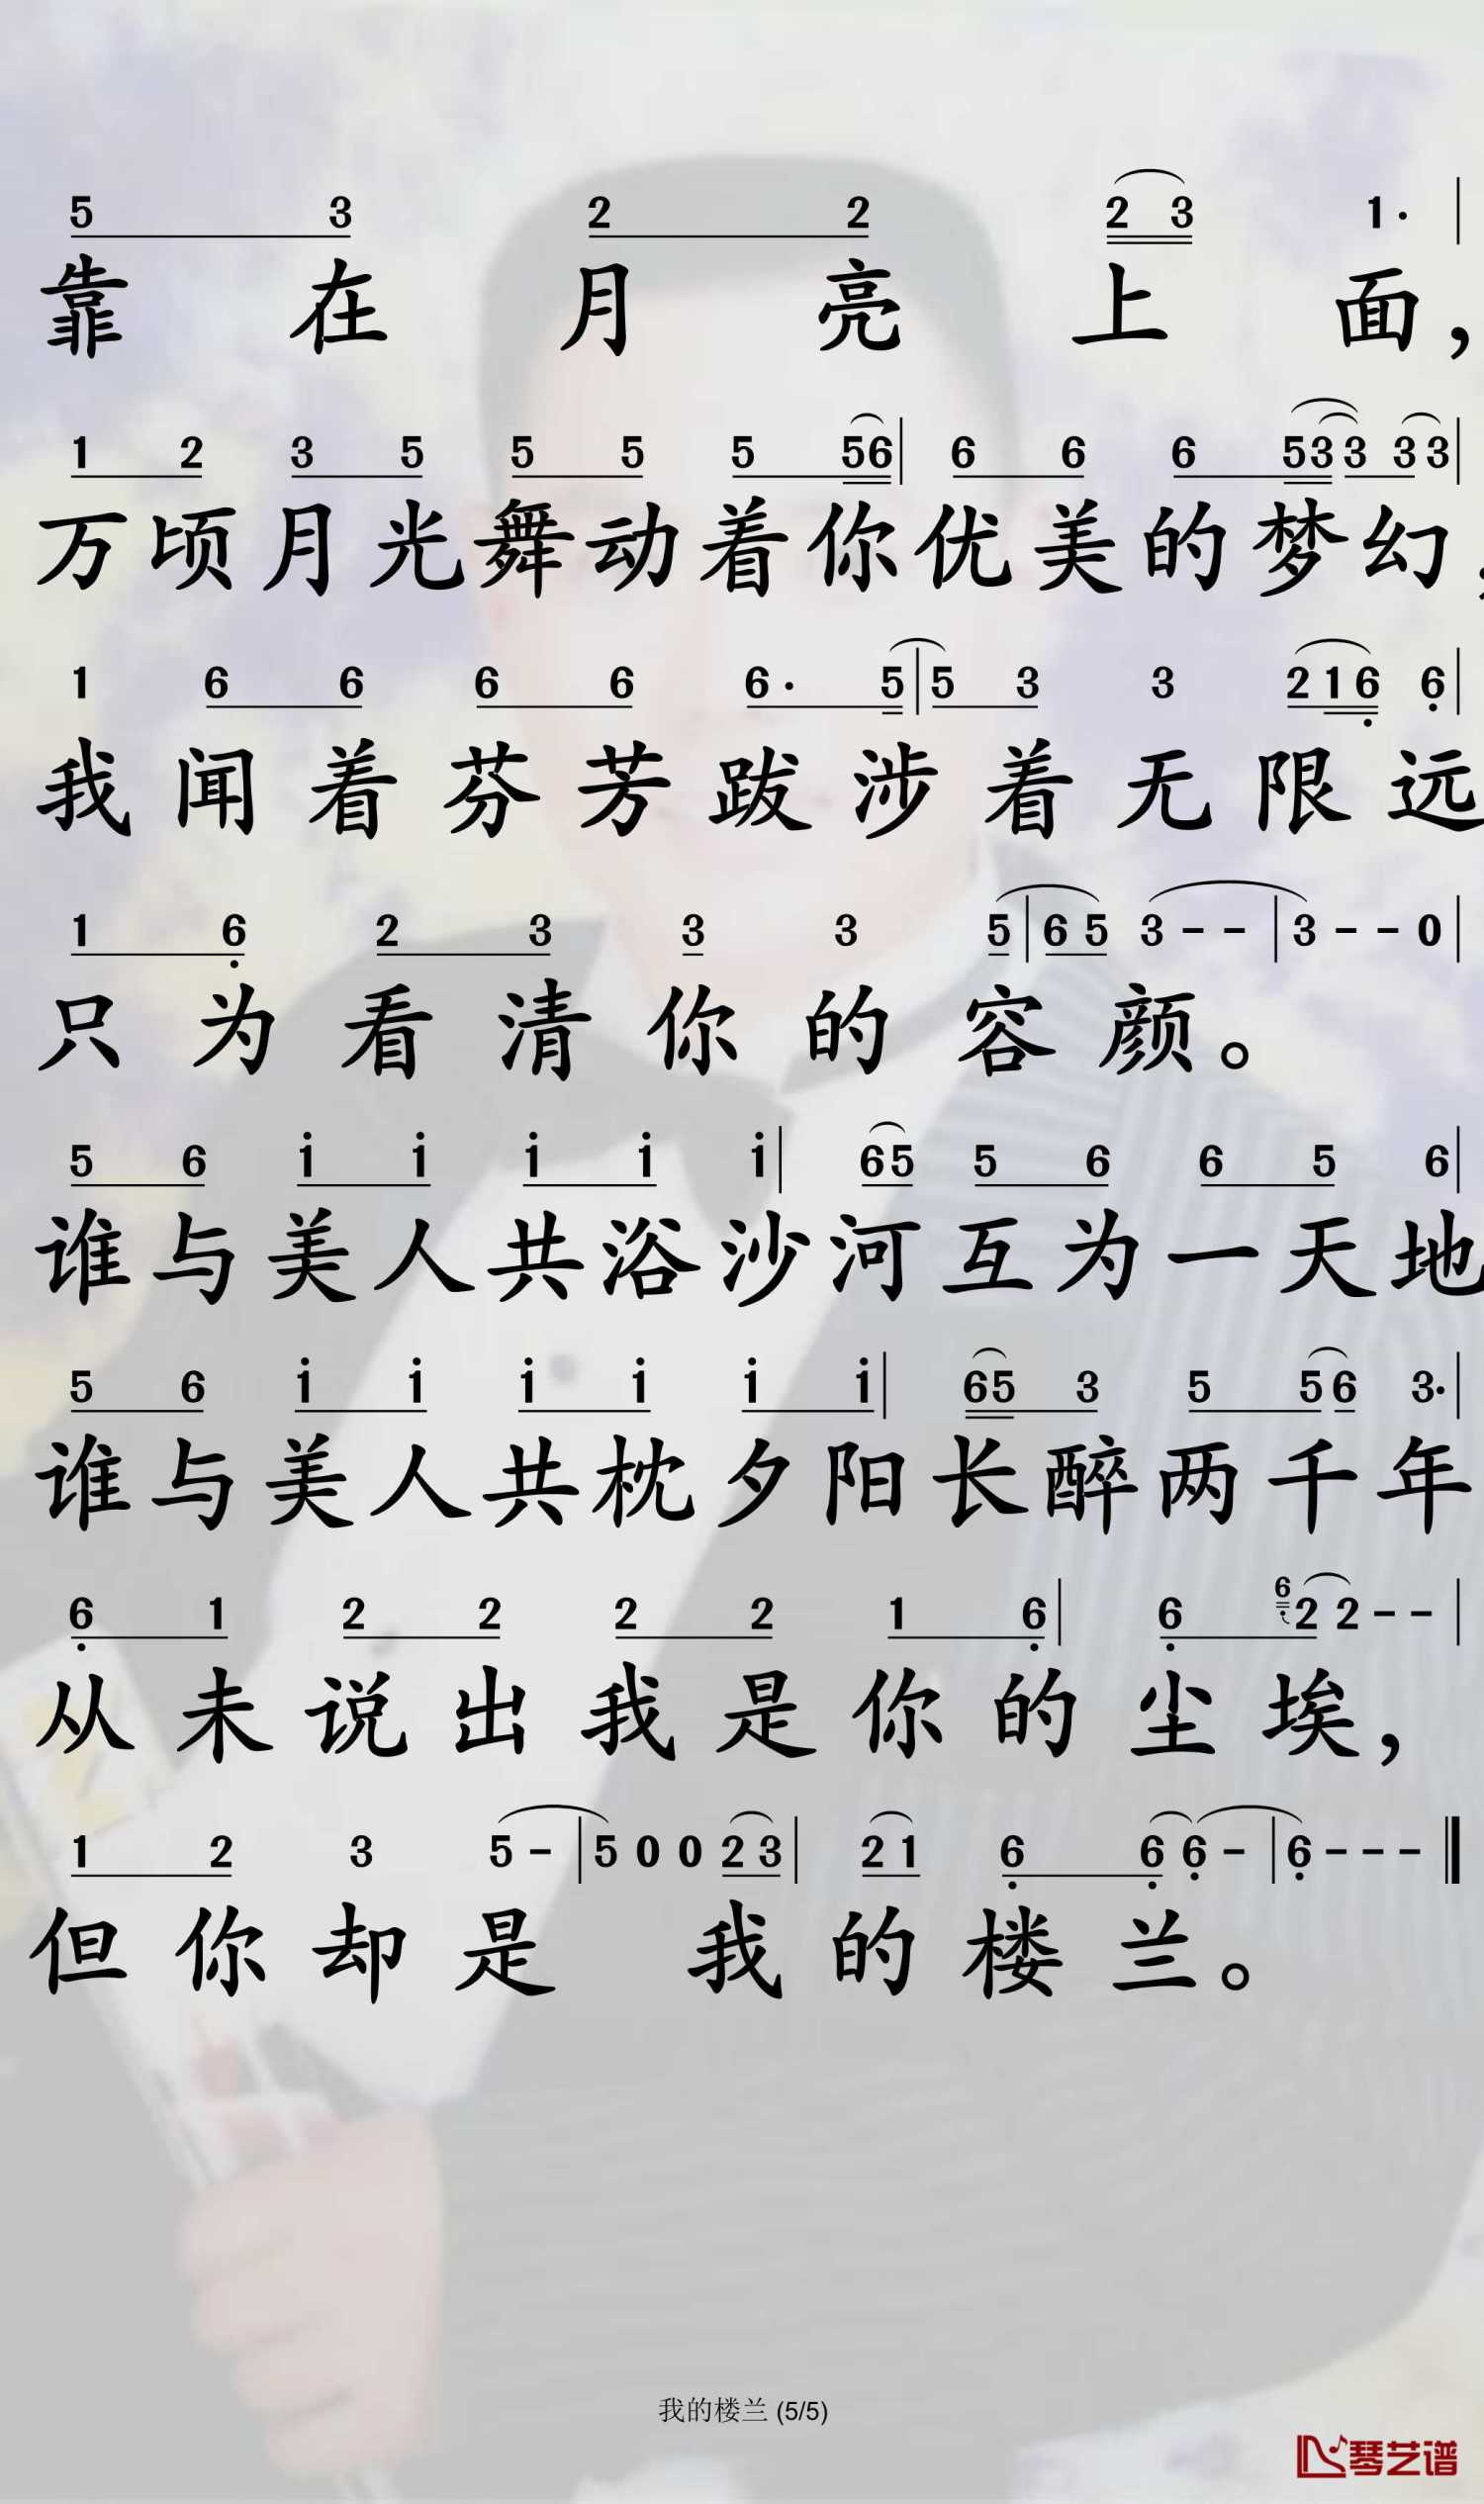 5 3 2 2 2 3 1· |
靠在月亮上面，
1 2 3 5 5 5 5 56 | 6 6 6 53 3 3 3 |
万顷月光舞动着你优美的梦幻，
1 6 6 6 6 6· 5 | 5 3 3 2 1 6̣ 6̣ |
我闻着芬芳跋涉着无限远
1 6̣ 2 3 3 3 5 | 6 5 3 - - | 3 - - 0 |
只为看清你的容颜。
5 6 i i i i i | 65 5 6 6 5 6 |
谁与美人共浴沙河互为一天地
5 6 i i i i i i | 65 3 5 5 6 3· |
谁与美人共枕夕阳长醉两千年
6̣ 1 2 2 2 2 1 6̣ | 6̣ 6 2 2 - - |
从未说出我是你的尘埃，
1 2 3 5 - | 5 0 0 2 3 | 2 1 6̣ 6̣ 6̣ - | 6̣ - - - ‖
但你却是 我的楼兰。
我的楼兰 (5/5)
琴艺谱